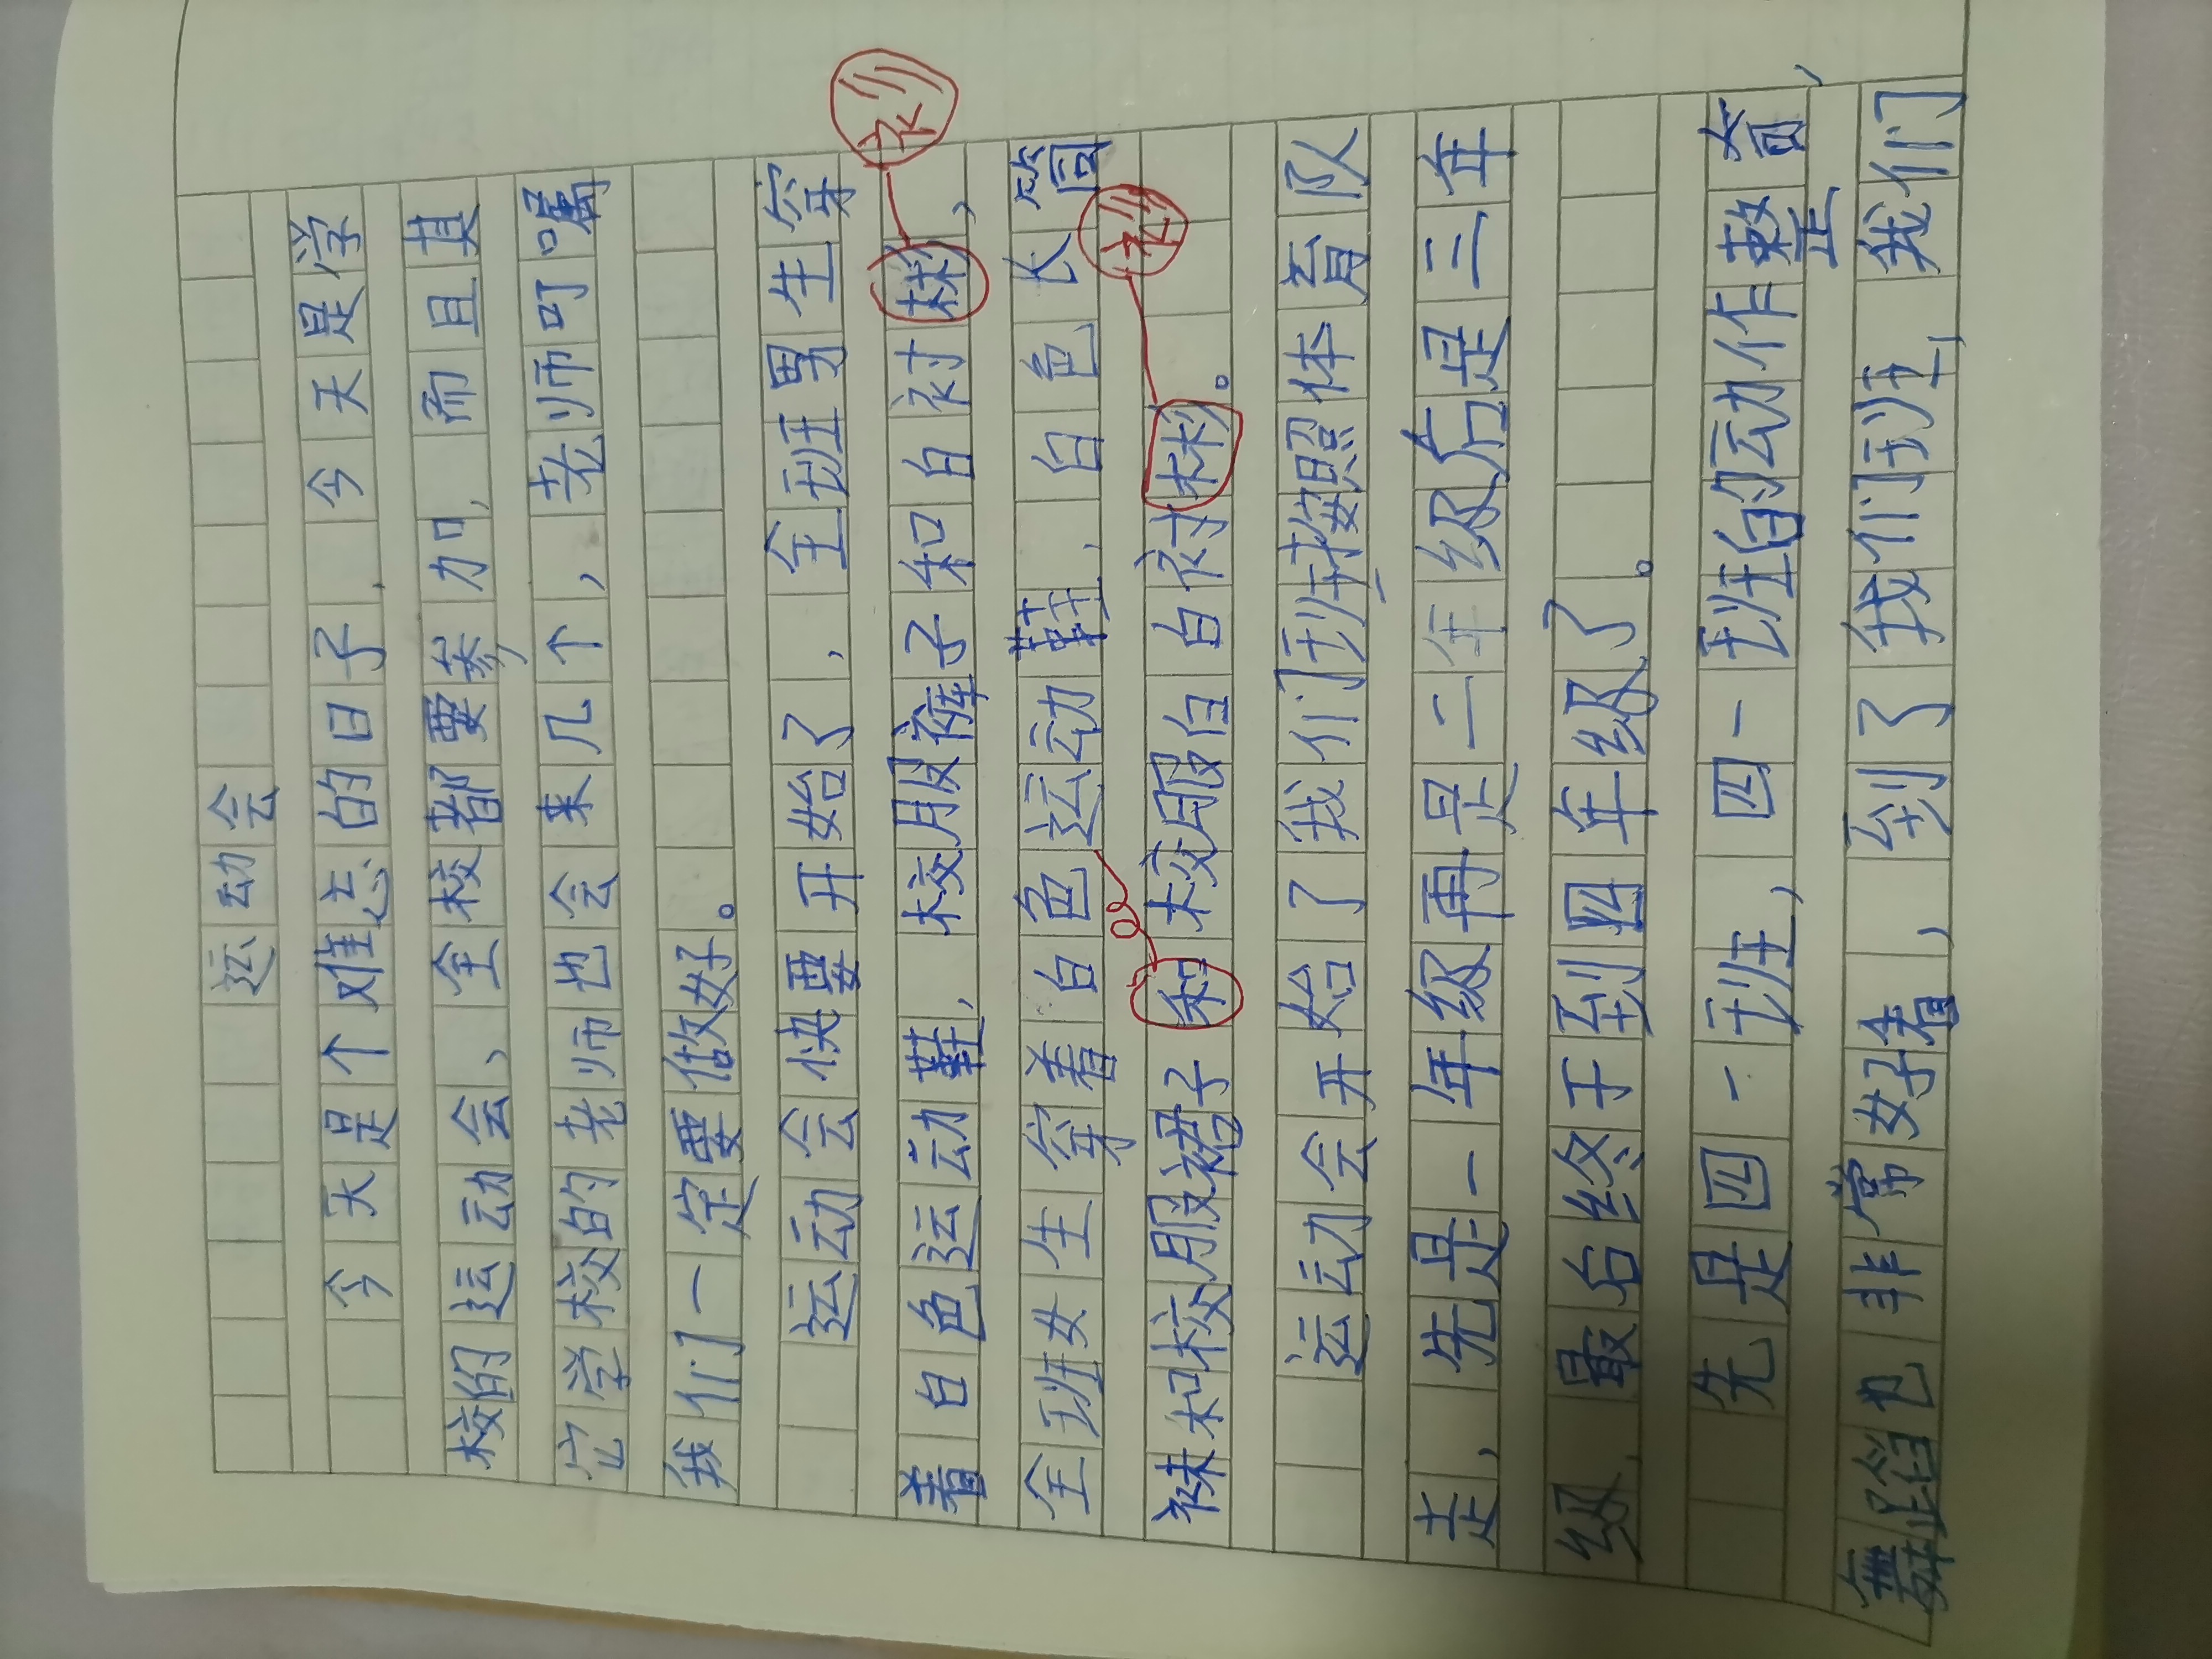 运动会
今天是个难忘的日子,今天是学
校的运动会、全校都要参加,而且其
它学校的老师也会来几个,老师叮嘱
我们一定要做好。
运动会快要开始了,全班男生穿
着白色运动鞋,校服裤子和白衬,
全班女生穿着白色运动鞋、白色长筒
袜和校服裙子和校服白白衬。
运动会开始了我们班按照体育队
走,先是一年级再是二年级后是三年
级,最后终于到四年级了。
先是四一班,四一班的运动作整齐,
舞蹈也非常好看,到了我们班,我们